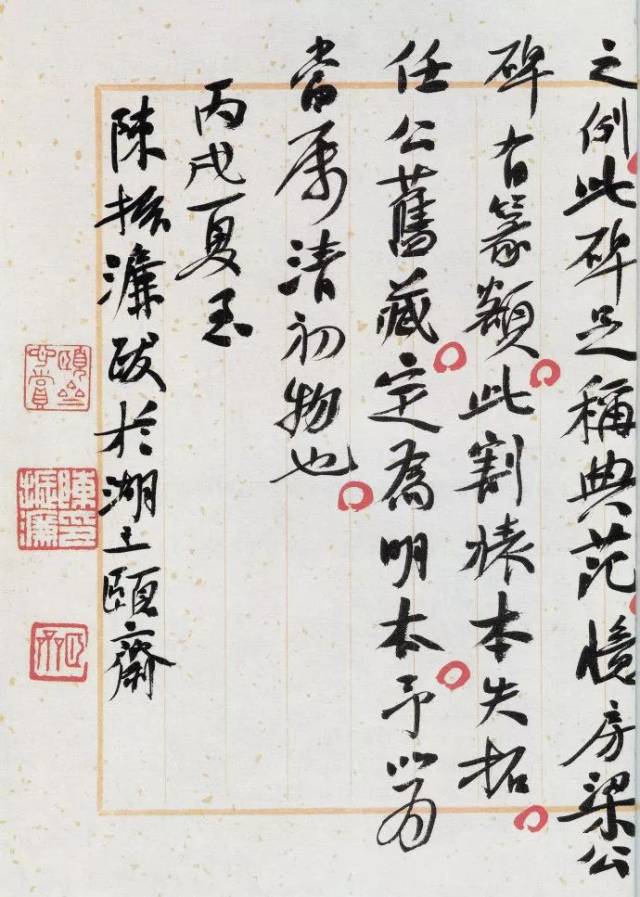 之例此碑足稱典范憶房梁公
碑有篆額此割裱本失拓
任公舊藏定為明本予以為
當屬清初物也
丙戌夏至
陳振濂跋於湖上頤齋
陳振濂